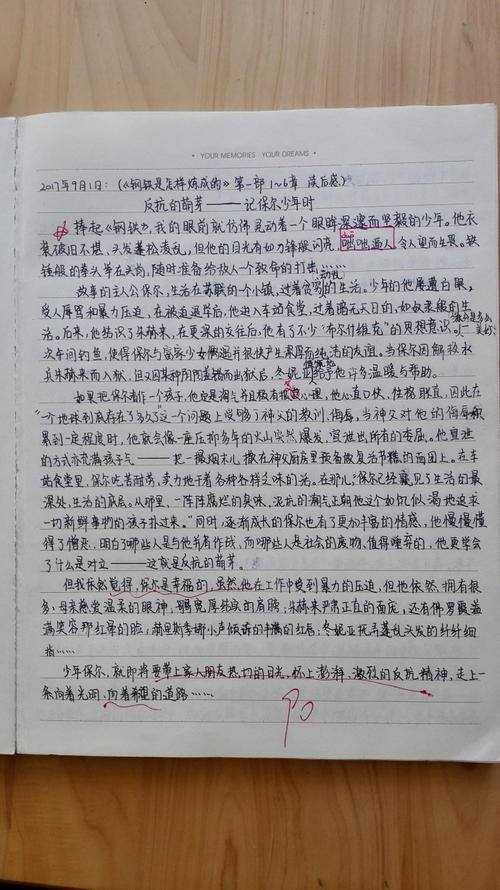 • YOUR MEMORIES YOUR DREAMS •
2017年9月1日：(《钢铁是怎样炼成的》第一部 1~6章 读后感)
反抗的萌芽——记保尔少年时
捧起《钢铁》，我的眼前就仿佛灵动着一个眼眸深邃而坚毅的少年。他衣
装破旧不堪、头发蓬松凌乱，但他的目光有如刀锋般闪亮，咄咄逼人，令人望而生畏。铁
锤般的拳头举在头前，随时准备给敌人一个致命的打击……
动乱
故事的主人公保尔，生活在苏联的一个小镇，过着贫穷的生活。少年的他屡遭白眼，
受人辱骂和暴力压迫，在被迫退学后，他进入车站食堂，过着暗无天日的，如奴隶般的生
活。后来，他结识了朱赫来，在更深的交往后，他有了不少“布尔什维克”的思想意识。
次车间钓鱼，使得保尔与富家少女偶遇并很快产生浓厚而纯洁的友谊。当保尔因解救水
兵朱赫来而入狱，但又因某种阴差阳错而出狱后，冬妮亚给予他许多温暖与帮助。
如果把保尔看作一个孩子，他定是淘气并且极有报复心理，他心直口快、性格耿直，因此在
“一个地球到底存在了多久”这个问题上受够了神父的教训、侮辱，当神父对他的侮辱积
累到一定程度时，他就会像一座压抑多年的火山突然爆发，宣泄出所有的委屈。他宣泄
的方式亦充满孩子气——把一撮烟末儿撒在神父厨房里预备做复活节糕的面团上。在车
站食堂里，保尔吃苦耐劳，卖力地干着各种各样乏味的活。在那儿，“保尔已经窥见了生活的最
深处，生活的底层。从那里，一阵阵腐烂的臭味、泥坑的潮气正朝他这个如饥似渴地追求
一切新鲜事物的孩子扑过来。”同时，逐渐成长的保尔也有了更加丰富的情感，他慢慢懂
得了憎恶，明白了哪些人是与他并肩作战，而哪些人是社会的废物、值得唾弃的，他更学会
了什么是对立——这就是反抗的萌芽。
但我依然觉得，保尔是幸福的，虽然他在工作中受到暴力的压迫，但他依然拥有很
多：母亲慈爱温柔的眼神，哥哥宽厚热实的肩膀，朱赫来严肃正直的面庞，还有佛罗霞溢
满笑容那红晕的脸；
指……
少年保尔，就即将要带上家人朋友热切的目光，怀上澎湃、激烈的反抗精神，走上一
条向着光明、向着希望的道路……
90